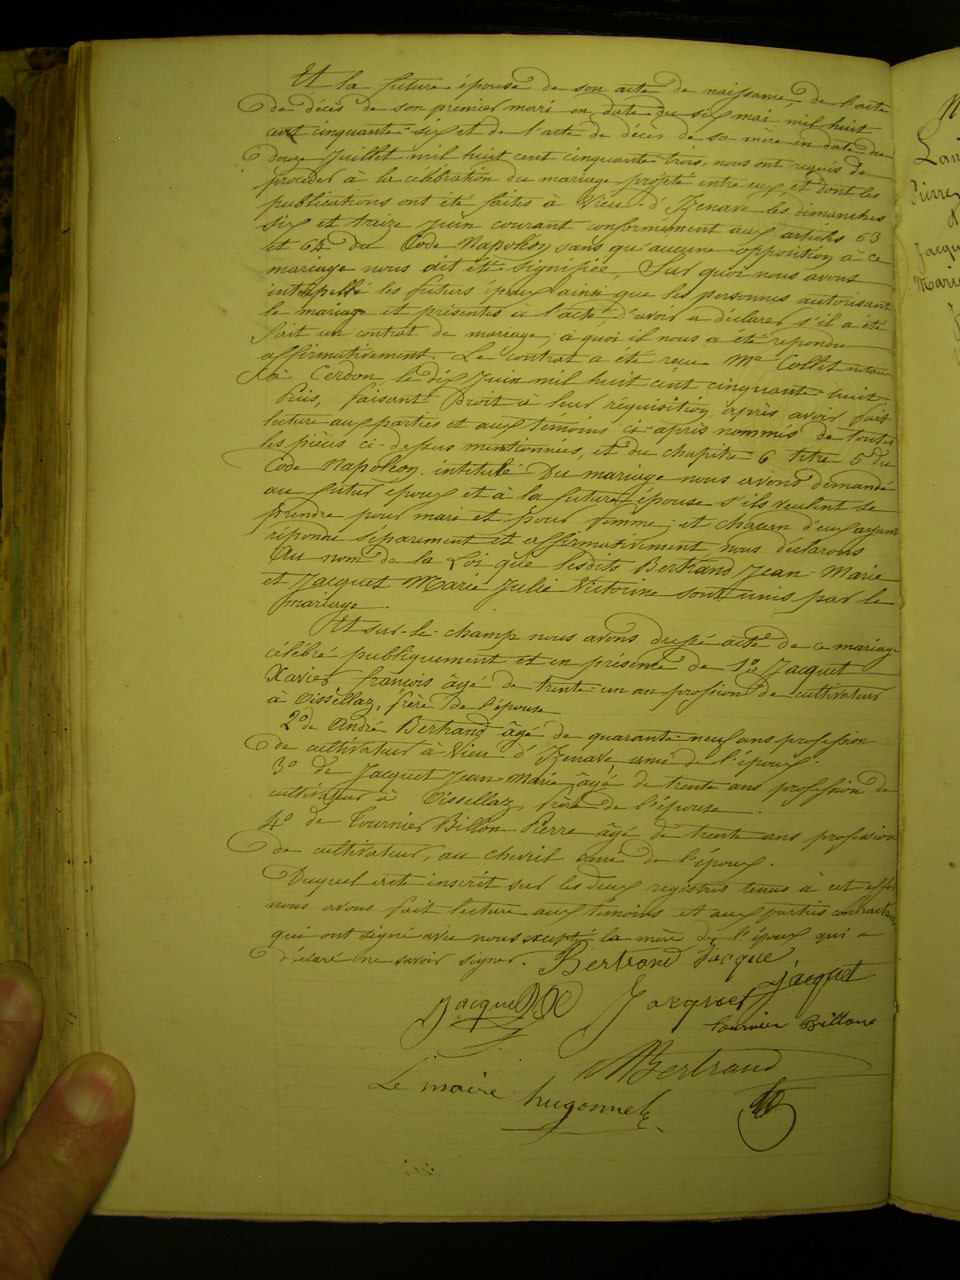 Et la future épouse de son acte de naissance, de l'acte
de décès de son premier mari en date du six mai mil huit
cent cinquante-six et de l'acte de décès de sa mère en date du
douze Juillet mil huit cent cinquante trois, nous ont requis de
procéder à la célébration du mariage projeté entre eux, et dont les
publications ont été faites à Vieu-d'Izenave les dimanches
six et treize Juin courant conformément aux articles 63
et 64 du Code Napoléon, sans qu'aucune opposition à ce
mariage nous ait été signifiée, Sur quoi nous avons
interpellé les futurs époux ainsi que les personnes autorisant
le mariage et présentes à l'acte, d'avoir à déclarer s'il a été
fait un contrat de mariage; à quoi il nous a été répondu
affirmativement. Le contrat a été reçu Me Collet notaire
à Cerdon, le dix Juin mil huit cent cinquante-huit.
Puis, faisant Droit à leur réquisition, après avoir fait
lecture aux parties et aux témoins ci-après nommés de toutes
les pièces ci-dessus mentionnées, et du chapitre 6 titre 5 du
Code Napoléon, intitulé Du mariage nous avons demandé
au futur époux et à la future épouse s'ils veulent se
prendre pour mari et pour femme; et chacun d'eux ayant
répondu séparément et affirmativement nous déclarons
Au nom de la Loi que lesdits Bertrand Jean-Marie
et Jacquet Marie Julie Victorine sont unis par le
mariage.
Et sur-le-champ nous avons dressé acte de ce mariage
célébré publiquement et en présence de 1º Jacquet
Xavier françois âgé de trente-un an profession de cultivateur
à Oissellaz, frère de l'épouse
2º de André Bertrand âgé de quarante-neuf ans profession
de cultivateur à Vieu d'Izenave ami de l'époux.
3º de Jacquet Jean-Marie âgé de trente ans profession de
cultivateur à Oissellaz, frère de l'épouse.
4º de Tournier Billon Pierre âgé de trente ans profession
de cultivateur, au chevril ami de l'époux.
Duquel acte inscrit sur les deux registres tenus à cet effet
nous avons fait lecture aux témoins et aux parties contractantes
qui ont signé avec nous excepté la mère de l'époux qui a
déclaré ne savoir signer. Bertrand Jacque
Jacquet Jacquet jacquet
tournier Billon
Bertrand
Le maire hugonnet